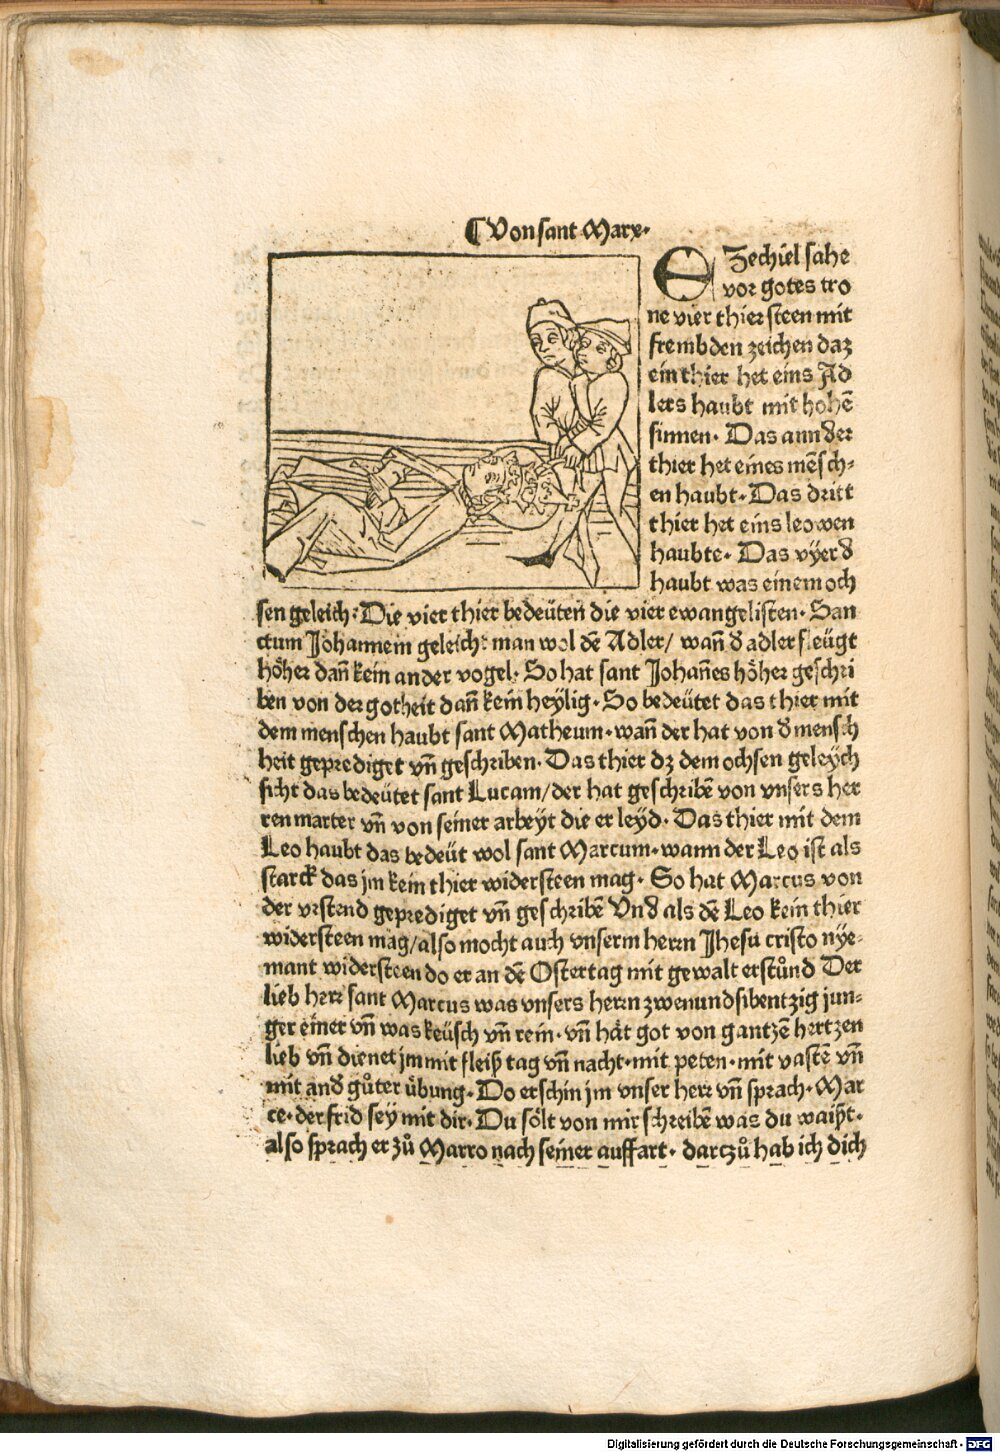 ⸿ Von sant Marx.
EZechiel sahe
vor gotes tro
ne vier thier steen mit
frembden zeichen daz
ein thier het eins Ad
lers haubt mit hohē
sinnen. Das annder
thier het eines mēsch-
en haubt. Das dritt
thier het eins leowen
haubte. Das vÿerd
haubt was einem och
sen geleich: Die vier thier bedeüten die vier ewangelisten. San
ctum Johannem geleicht man wol dē Adler/ wañ d adler fleügt
höher dañ kein ander vogel. So hat sant Johañes höher geschri
ben von der gotheit dañ kein heylig. So bedeütet das thier mit
dem menschen haubt sant Matheum. wañ der hat von d mensch
heit geprediget vñ geschriben. Das thier dz dem ochsen geleÿch
sicht das bedeütet sant Lucam/ der hat geschribē von vnsers her
ren marter vñ von seiner arbeyt die er leÿd. Das thier mit dem
Leo haubt das bedeüt wol sant Marcum. wann der Leo ist als
starck das jm kein thier widersteen mag. So hat Marcus von
der vrstend geprediget vñ geschribē Vnd als dē Leo kein thier
widersteen mag/ also mocht auch vnserm herrn Jhesu cristo nÿe-
mant widersteen do er an dē Ostertag mit gewalt erstůnd Der
lieb herr sant Marcus was vnsers herrn zwenundsibentzig jun-
ger einer vñ was keüsch vñ rein. vñ hät got von gantzē hertzen
lieb vñ dienet jm mit fleiß tag vñ nacht. mit peten. mit vastē vñ
mit and gůter übung. Do erschin jm vnser herr vñ sprach. Mar
ce. der frid sey mit dir. Du sölt von mir schreibē was du waißt.
also sprach er zů Marro nach seiner auffart. darczů hab ich dich
Digitalisierung gefördert durch die Deutsche Forschungsgemeinschaft - DFG